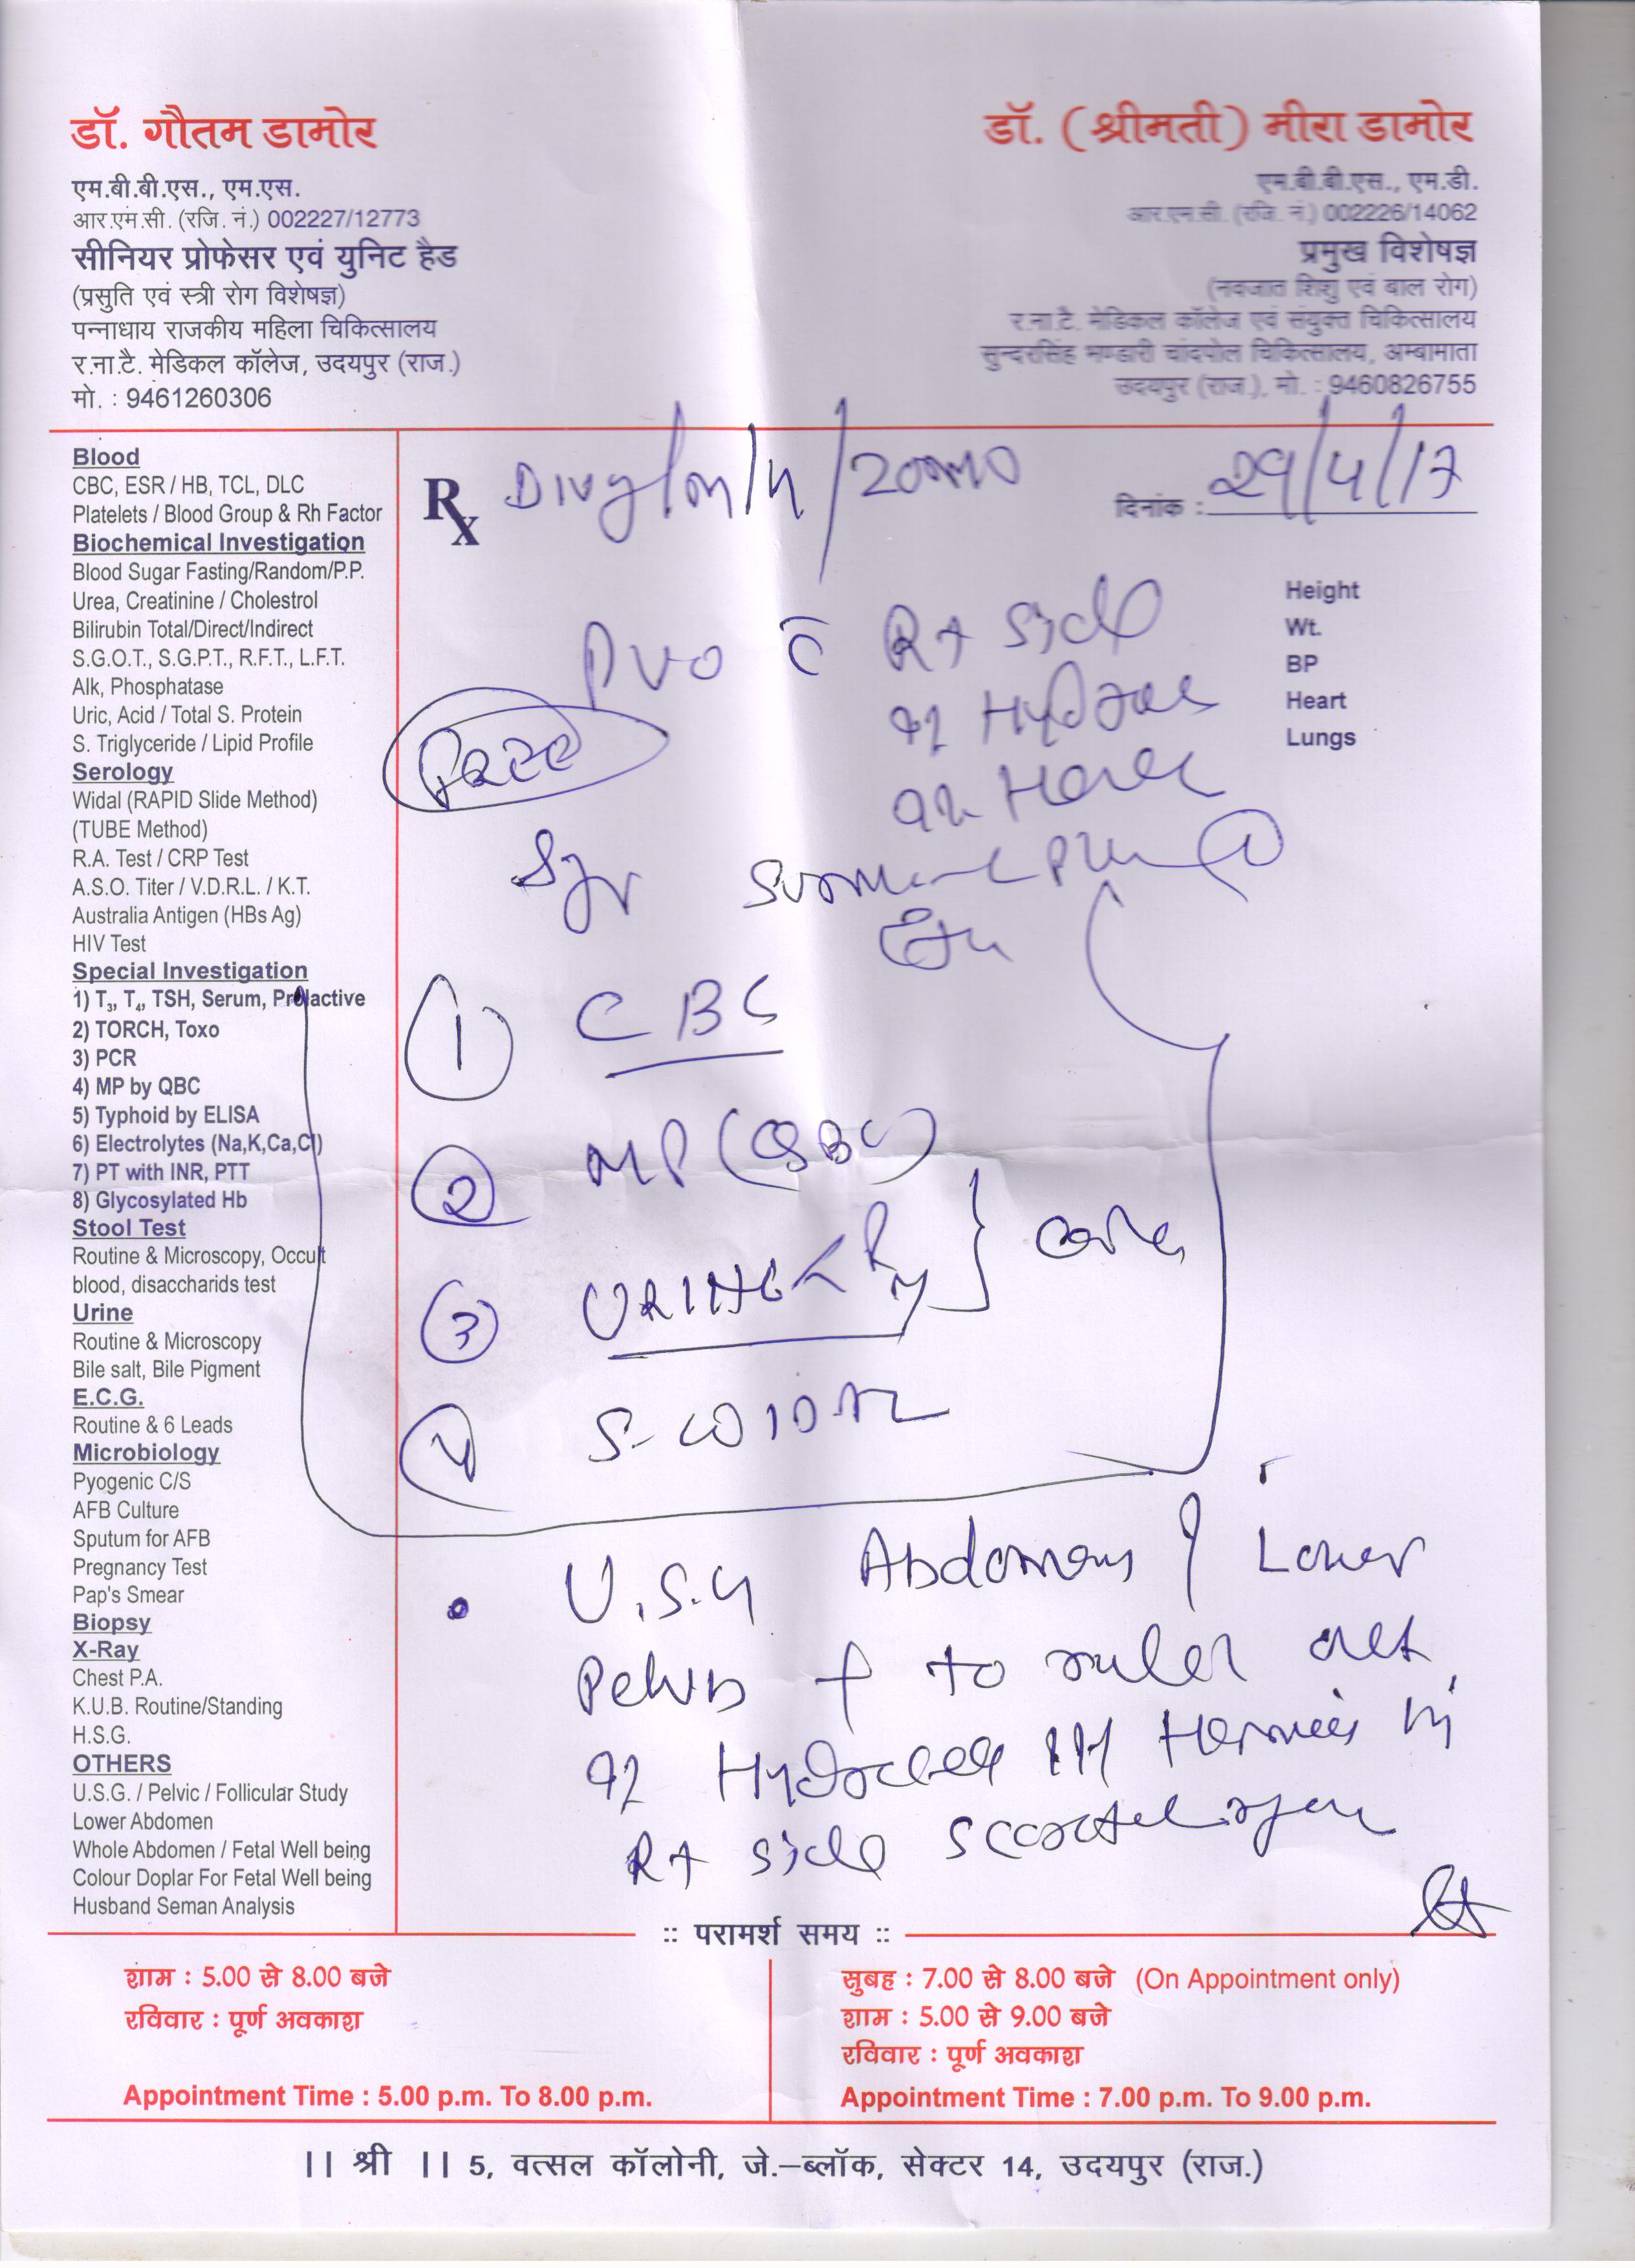 डॉ. गौतम डामोर
एम.बी.बी.एस., एम.एस.
आर.एम.सी. (रजि. नं.) 002227/12773
सीनियर प्रोफेसर एवं युनिट हैड
(प्रसुति एवं स्त्री रोग विशेषज्ञ)
पन्नाधाय राजकीय महिला चिकित्सालय
र.ना.टै. मेडिकल कॉलेज, उदयपुर (राज.)
मो. : 9461260306
डॉ. (श्रीमती) मीरा डामोर
एम.बी.बी.एस., एम.डी.
आर.एम.सी. (रजि. नं.) 002226/14062
प्रमुख विशेषज्ञ
(नवजात शिशु एवं बाल रोग)
र.ना.टै. मेडिकल कॉलेज एवं संयुक्त चिकित्सालय
सुन्दरसिंह भण्डारी चांदपोल चिकित्सालय, अम्बामाता
उदयपुर (राज.), मो. : 9460826755
Blood
CBC, ESR / HB, TCL, DLC
Platelets / Blood Group & Rh Factor
Biochemical Investigation
Blood Sugar Fasting/Random/P.P.
Urea, Creatinine / Cholestrol
Bilirubin Total/Direct/Indirect
S.G.O.T., S.G.P.T., R.F.T., L.F.T.
Alk, Phosphatase
Uric, Acid / Total S. Protein
S. Triglyceride / Lipid Profile
Serology
Widal (RAPID Slide Method)
(TUBE Method)
R.A. Test / CRP Test
A.S.O. Titer / V.D.R.L. / K.T.
Australia Antigen (HBs Ag)
HIV Test
Special Investigation
1) T3, T4, TSH, Serum, Prolactive
2) TORCH, Toxo
3) PCR
4) MP by QBC
5) Typhoid by ELISA
6) Electrolytes (Na,K,Ca,Cl)
7) PT with INR, PTT
8) Glycosylated Hb
Stool Test
Routine & Microscopy, Occult
blood, disaccharids test
Urine
Routine & Microscopy
Bile salt, Bile Pigment
E.C.G.
Routine & 6 Leads
Microbiology
Pyogenic C/S
AFB Culture
Sputum for AFB
Pregnancy Test
Pap's Smear
Biopsy
X-Ray
Chest P.A.
K.U.B. Routine/Standing
H.S.G.
OTHERS
U.S.G. / Pelvic / Follicular Study
Lower Abdomen
Whole Abdomen / Fetal Well being
Colour Doplar For Fetal Well being
Husband Seman Analysis
Rx
दिनांक : 29/4/17
Height
Wt.
BP
Heart
Lungs
PUO c̄ Rt side
1 CBC
2 MP (QBC)
3 URINE
4 S- WIDAL
U.S.G Abdomen Lower
Pelvis to rule out
Hydrocele Hernia in
Rt side scrotal
:: परामर्श समय ::
शाम : 5.00 से 8.00 बजे
रविवार : पूर्ण अवकाश
Appointment Time : 5.00 p.m. To 8.00 p.m.
सुबह : 7.00 से 8.00 बजे (On Appointment only)
शाम : 5.00 से 9.00 बजे
रविवार : पूर्ण अवकाश
Appointment Time : 7.00 p.m. To 9.00 p.m.
|| श्री || 5, वत्सल कॉलोनी, जे.–ब्लॉक, सेक्टर 14, उदयपुर (राज.)